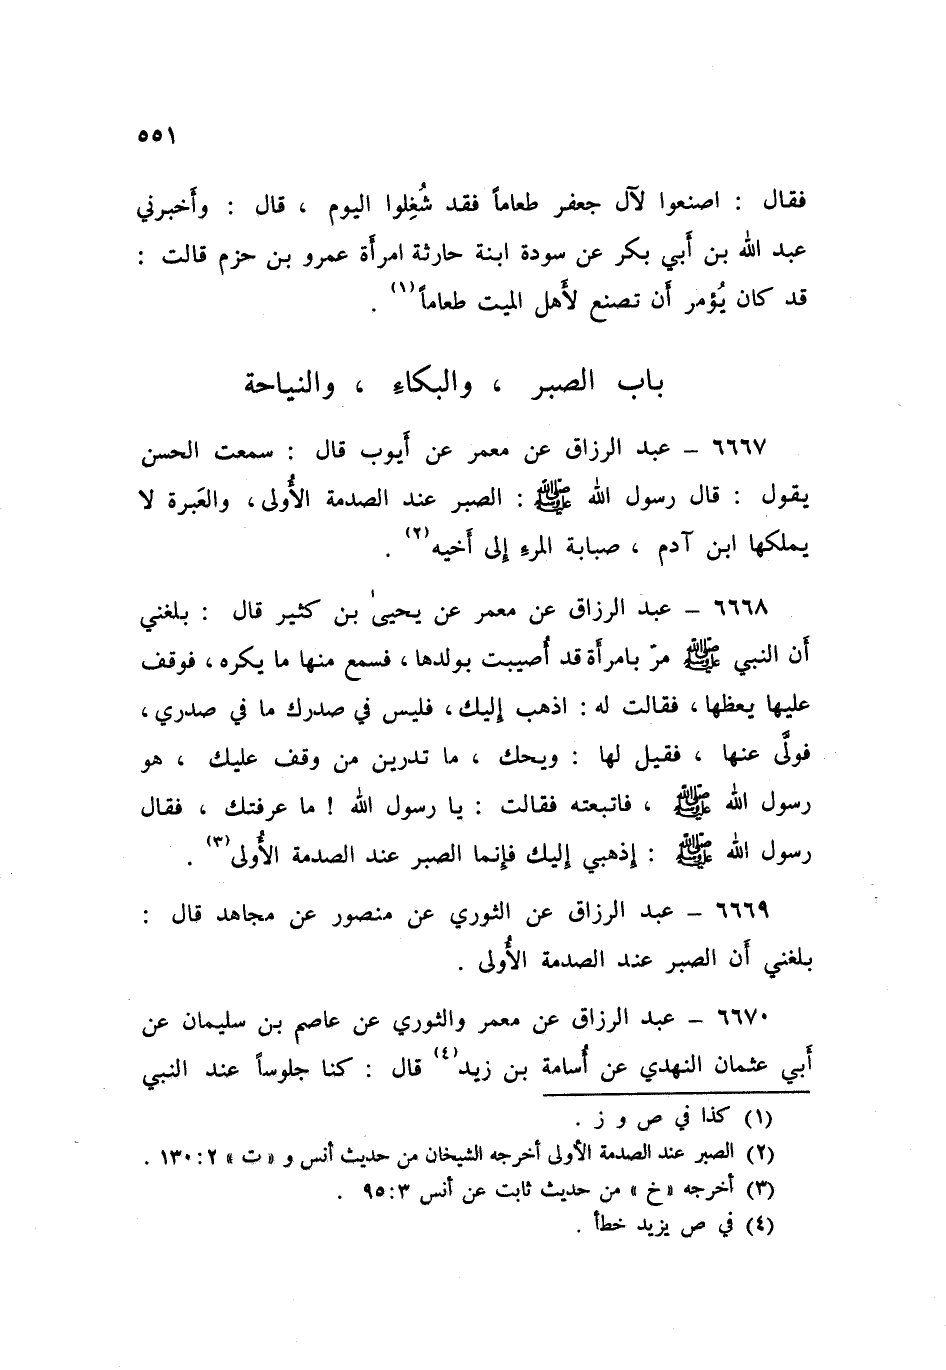 ٥٥١
فقال : اصنعوا لآل جعفر طعاماً فقد شُغِلوا اليوم ، قال : وأَخبرني
عبد الله بن أَبي بكر عن سودة ابنة حارثة امرأَة عمرو بن حزم قالت :
قد كان يُؤمر أَن تصنع لأَهل الميت طعاماً(١) .
باب الصبر ، والبكاءِ ، والنياحة
٦٦٦٧ – عبد الرزاق عن معمر عن أَيوب قال : سمعت الحسن
يقول : قال رسول الله ﷺ : الصبر عند الصدمة الأُولى، والعَبرة لا
يملكها ابن آدم ، صبابة المرءِ إِلى أَخيه(٢) .
٦٦٦٨ – عبد الرزاق عن معمر عن يحيىٰ بن كثير قال : بلغني
أَن النبي ﷺ مرّ بامرأَة قد أُصيبت بولدها، فسمع منها ما يكره، فوقف
عليها يعظها، فقالت له : اذهب إِليك، فليس في صدرك ما في صدري،
فولَّى عنها ، فقيل لها : ويحك ، ما تدرين من وقف عليك ، هو
رسول الله ﷺ ، فاتبعته فقالت : يا رسول الله ! ما عرفتك ، فقال
رسول الله ﷺ : إِذهبي إِليك فإِنما الصبر عند الصدمة الأُولى(٣) .
٦٦٦٩ – عبد الرزاق عن الثوري عن منصور عن مجاهد قال :
بلغني أَن الصبر عند الصدمة الأُولى .
٦٦٧٠ – عبد الرزاق عن معمر والثوري عن عاصم بن سليمان عن
أَبي عثمان النهدي عن أُسامة بن زيد(٤) قال : كنا جلوساً عند النبي
(١) كذا في ص و ز .
(٢) الصبر عند الصدمة الأولى أخرجه الشيخان من حديث أنس و « ت » ٢ : ١٣٠ .
(٣) أخرجه « خ » من حديث ثابت عن أنس ٣ : ٩٥ .
(٤) في ص يزيد خطأ .